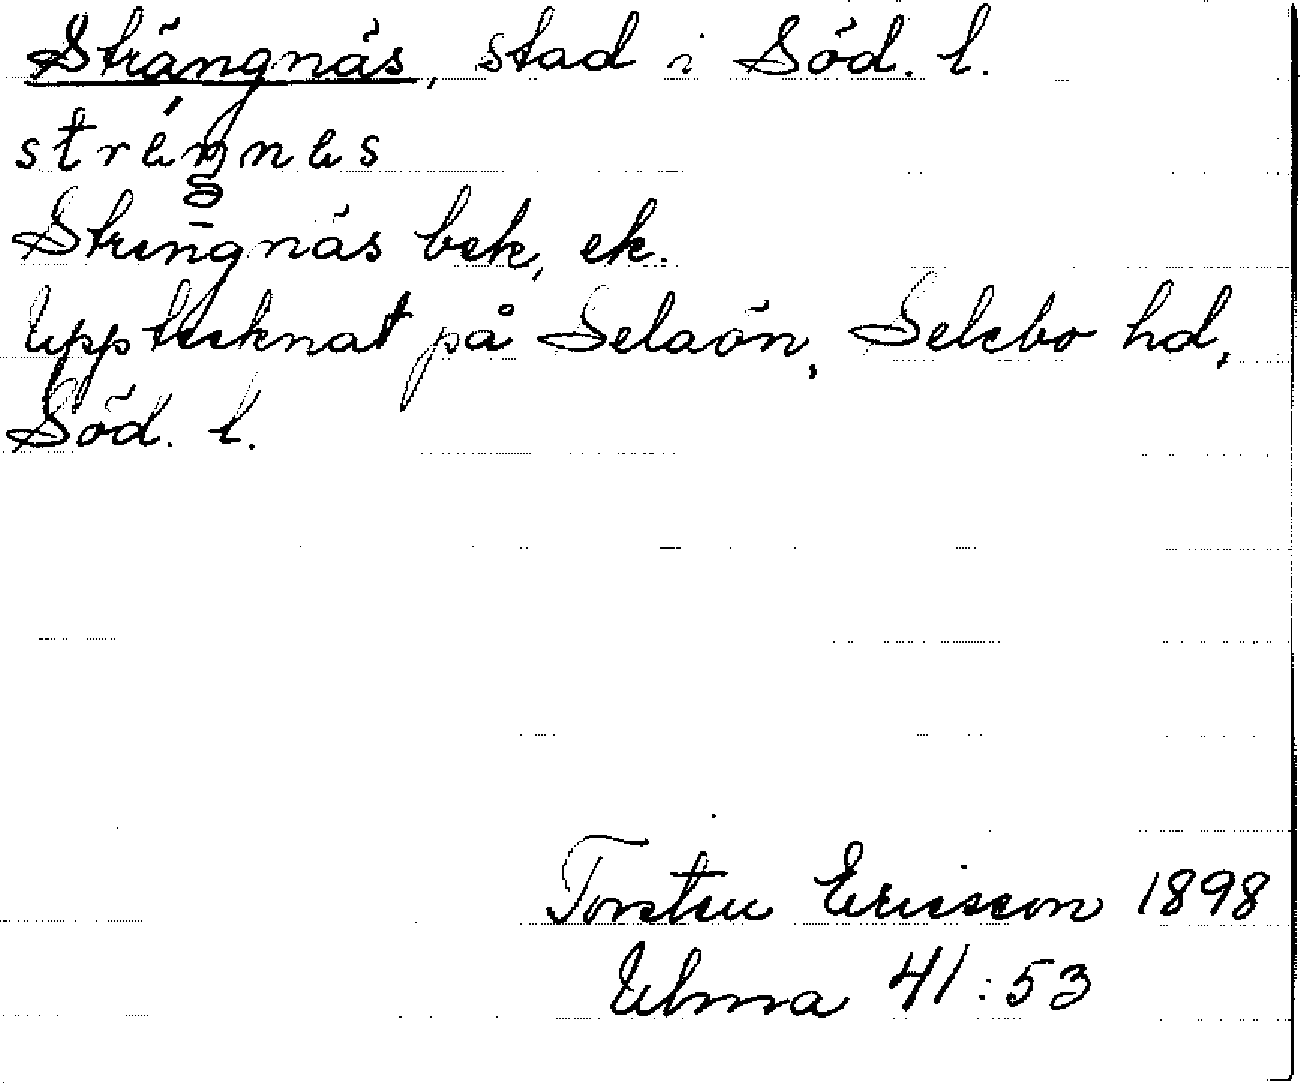 Strängnäs, stad i Söd. l.
stréŋnes
Strengnäs bek, ek.
Upptecknat på Selaön, Selebo hd,
Söd. l.
Torsten Ericsson 1898
Ulma 41:53